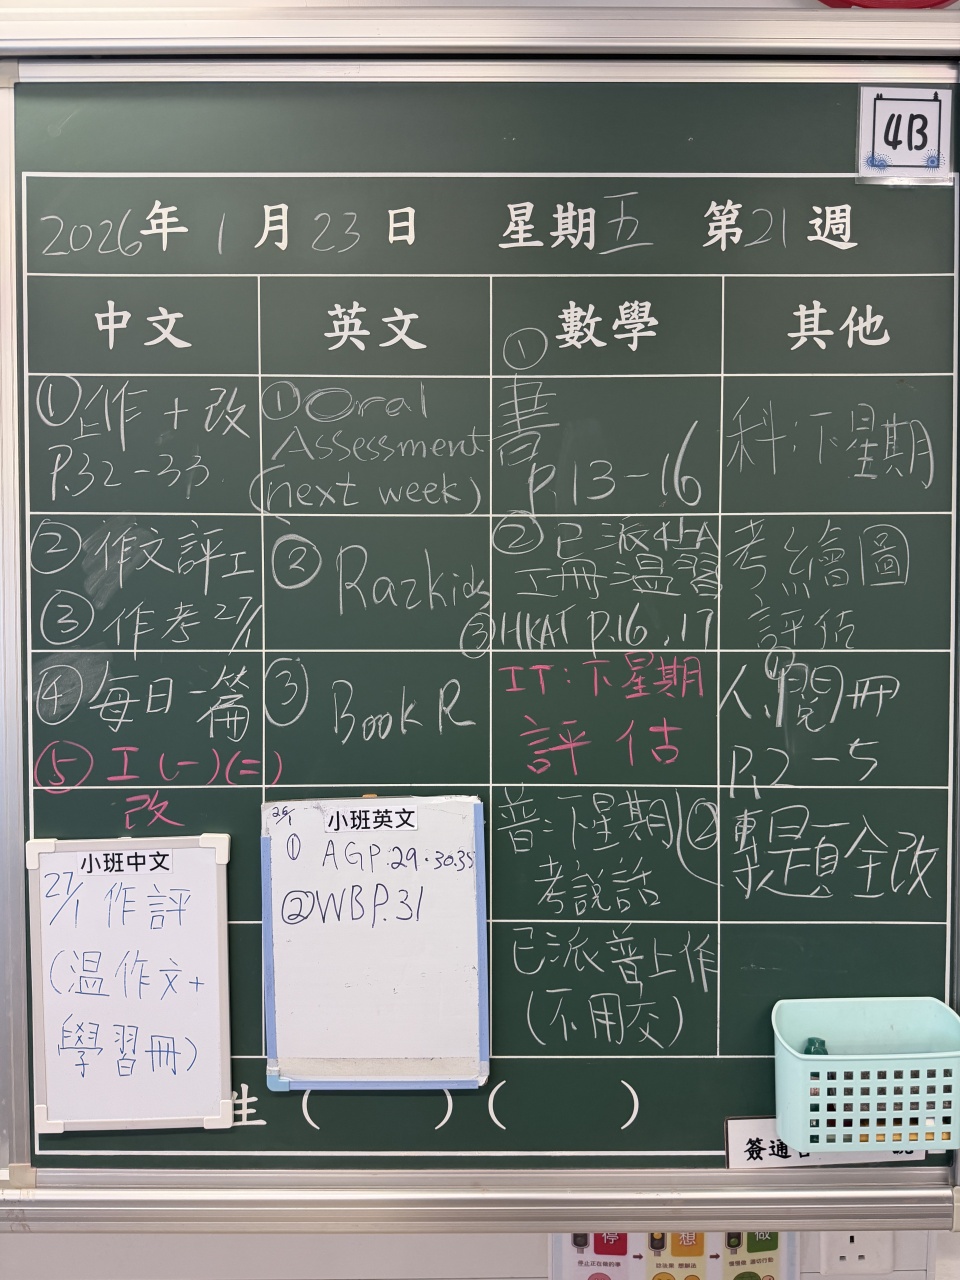 4B
2026年1月23日 星期五 第21週
中文 英文 數學 其他
①上作+改
P.32-33
②作文評工
③作考27/1
④每日一篇
⑤工(一)(二)
改
①Oral
Assessment
(next week)
②Razkids
③Book R
①
書
P.13-16
②已派
工冊溫習
③HKAT P.16,17
IT:下星期
評估
普:下星期
考說話
已派普上作
(不用交)
科:下星期
考繪圖
評估
人:①
冊
P.2-5
②專題全改
小班中文
27/1 作評
(溫作文+
學習冊)
26/1
小班英文
① AGP.29.30.35
②WBP.31
生( )( )
簽通告
停
想
做